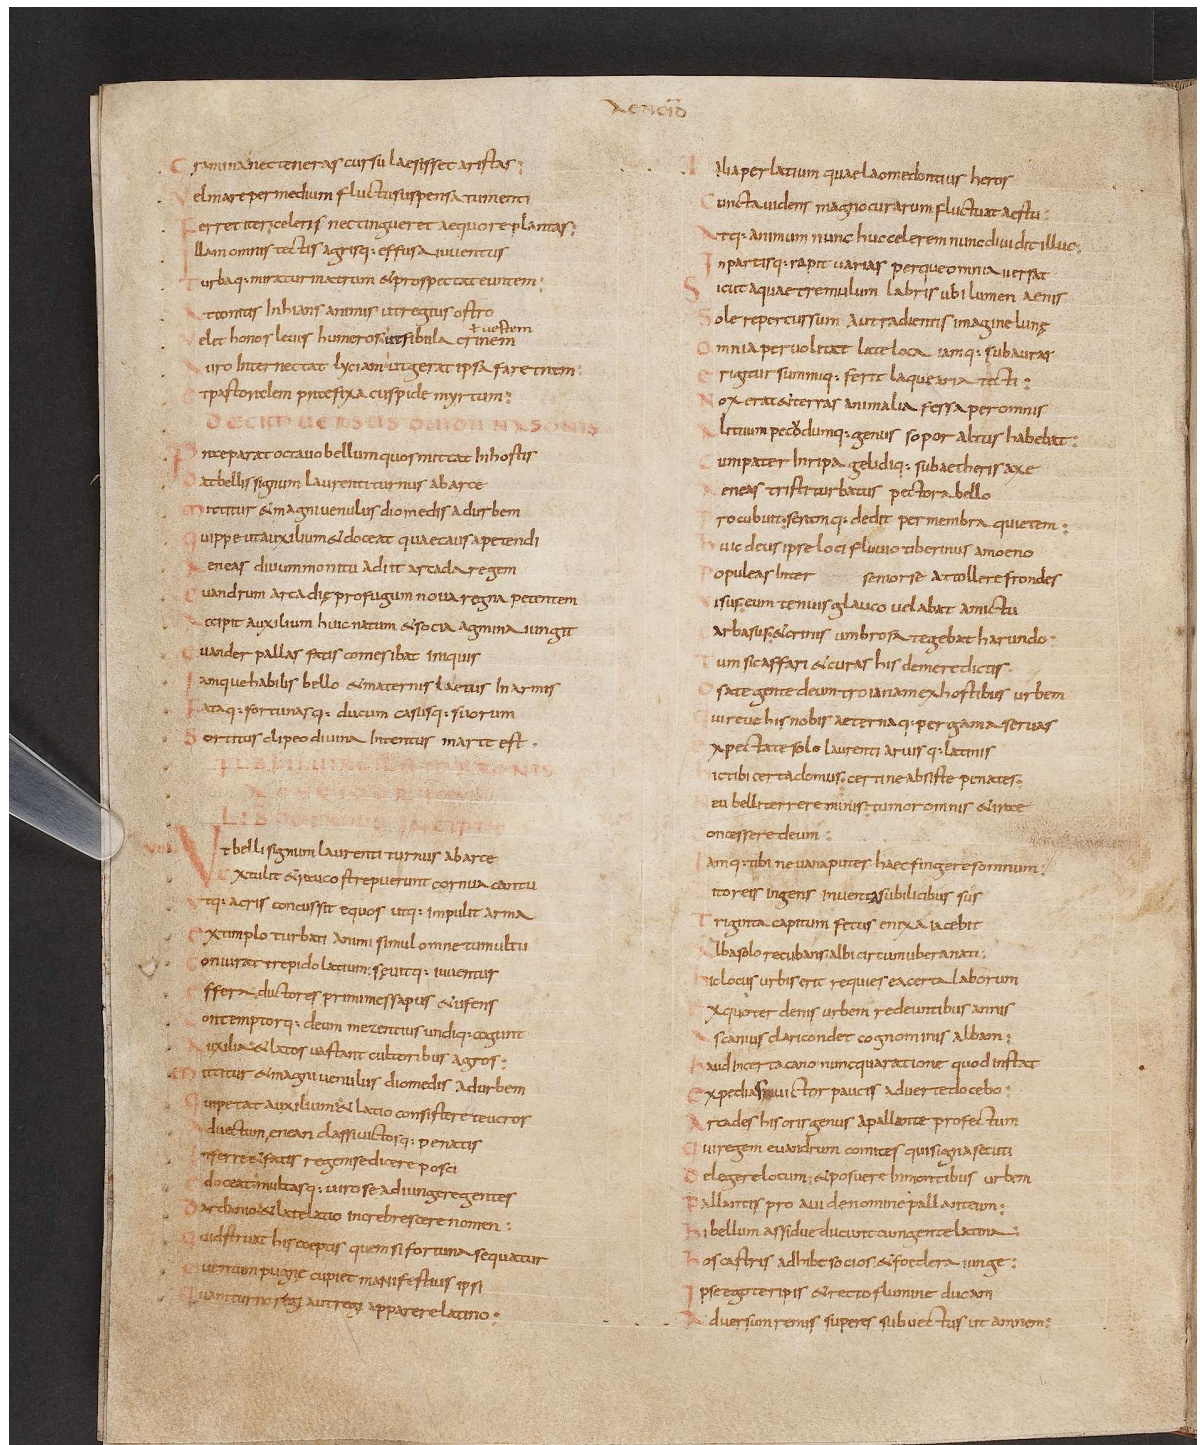 AENEID
Gramina nec teneras cursu laesisset aristas:
Vel mare per medium fluctu suspensa tumenti
Ferret iter celeris nec tingueret aequore plantas:
Illam omnis tectis agrisq: effusa iuuentus
Turbaq: miratur matrum & prospectat euntem:
Attonitis Inhians animis ut regius ostro
ł uestem
Velet honos leuis humeros ut fibula crinem
Auro Internectat lyciam ut gerat ipsa faretram:
Et pastoralem praefixa cuspide myrtum:
DECEM UERSUS OUIDII NASONIS
Praeparat octauo bellum quos mittat In hostis
Dat belli signum laurenti turnus ab arce
Mittitur & magni uenulus diomedis ad urbem
Quippe ut auxilium & doceat quae causa petendi
Aeneas diuum monitu Adiit arcada regem
Euandrum arcadię profugum noua regna petentem
Accipit auxilium huic natum & socia agmina iungit
Euander pallas fatis comes ibat iniquis
Iamque habilis bello & maternis laetus In armis
Fataq: fortunasq: ducum casusq: suorum
Sortitus clipeo diuina Intentus marte est.
Vt belli signum laurenti turnus ab arce
Extulit & rauco strepuerunt cornua cantu
Vtq: acris concussit equos utq: impulit arma
Extimplo turbati Animi simul omne tumultu
Coniurat trepido latium: sęuitq: iuuentus
Effera, ductores primi messapus & ufens
Contemptorq: deum mezentius undiq: cogunt
Auxilia & latos uastant cultoribus agros:
Mittitur & magni uenulus diomedis ad urbem
Qui petat auxilium & latio consistere teucros
Aduectum enean classi uictosq: penatis
Inferre & fatis regem se dicere posci
Edoceat multasq: uiro se adiungere gentes
Dardanio & late latio increbrescere nomen:
Quid struat his coeptis quem si fortuna sequatur
Euentum pugnę cupiet manifestius ipsi
Quam turno regi aut regi apparere latino:
Talia per latium quae laomedontius heros
Cuncta uidens magno curarum fluctuat aestu:
Atq: animum nunc huc celerem nunc diuidit illuc:
Inpartisq: rapit uarias perque omnia uersat
Sicut aquae tremulum labris ubi lumen aenis
Sole repercussum Aut radientis imagine lunę
Omnia peruolitat late loca iamq: sub auras
Erigitur summiq: ferit laquearia tecti:
Nox erat & terras animalia fessa per omnis
Alituum pecodumq: genus sopor altus habebat:
Cum pater In ripa gelidiq: sub aetheris axe
Aeneas tristi turbatus pectora bello
Procubuit: seramq: dedit per membra quietem:
Huic deus ipse loci fluuio tiberinus amoeno
Populeas Inter seniorse Attollere frondes
Visus: eum tenuis glauco uelabat amictu
Carbasus: & crinis umbrosa tegebat harundo:
Tum sic affari & curas his demere dictis.
O sate gente deum troianam ex hostibus urbem
Qui reuehis nobis aeternaq: pergama seruas
Expectate solo laurenti aruisq: latinis
Hic tibi certa domus: certi ne absiste penates:
Neu belli terrere minis: tumor omnis & irae
Concessere deum:
Iamq: tibi ne uana putes haec fingere somnum:
Litoreis ingens inuenta sub ilicibus sus
Triginta capitum fetus enixa iacebit
Alba solo recubans: albi circum ubera nati:
Hic locus urbis erit requies ea certa laborum
Ex quo ter denis urbem redeuntibus annis
Ascanius clari condet cognominis albam:
Haud incerta cano nunc qua ratione quod instat
Expedias uictor paucis aduerte docebo:
Arcades his oris genus a pallante profectum
Qui regem euandrum comites qui signa secuti
Delegere locum: & posuere In montibus urbem
Pallantis pro aui de nomine pallanteum:
Hi bellum assidue ducunt cum gente latina:
Hos castris adhibe socios & foedera iunge:
Ipse ego te ripis & recto flumine ducam
Aduersum remis superes subuectus ut amnem: